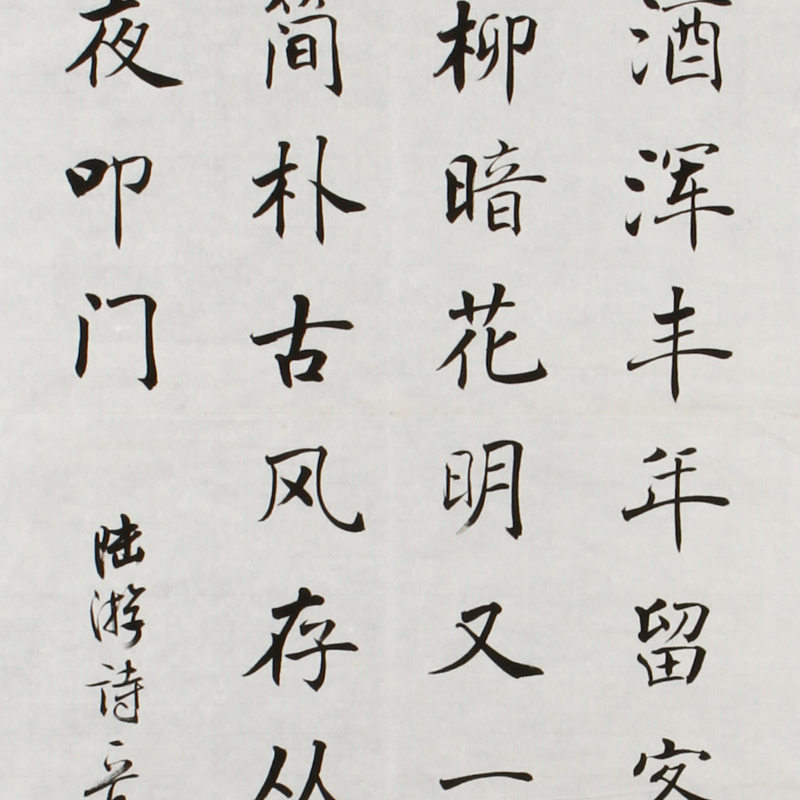 酒浑丰年留客
柳暗花明又一
简朴古风存从
夜叩门
陆游詩一